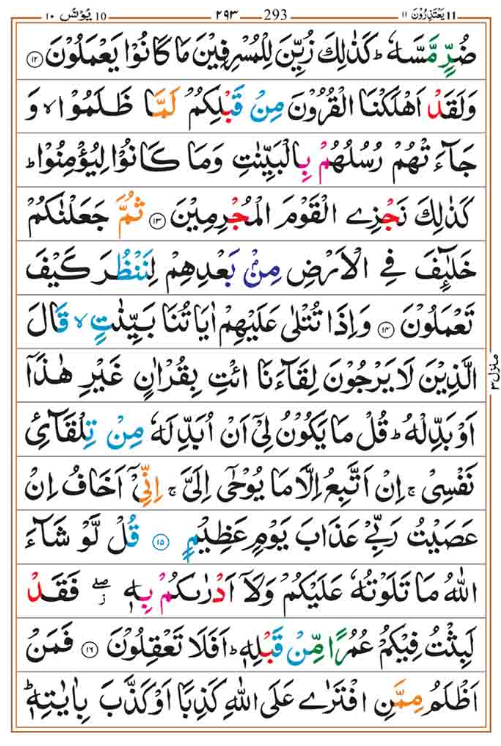 یَعْتَذِرُوْنَ ۱۱ 293 ۲۹۳ یُوْنُس ۱۰
ضُرٍّ مَّسَّهٗؕ کَذٰلِكَ زُیِّنَ لِلْمُسْرِفِیْنَ مَا کَانُوْا یَعْمَلُوْنَ ﴿۱۲﴾
وَلَقَدْ اَهْلَكْنَا الْقُرُوْنَ مِنْ قَبْلِكُمْ لَمَّا ظَلَمُوْا ۙ وَ
جَآءَتْهُمْ رُسُلُهُمْ بِالْبَیِّنٰتِ وَمَا کَانُوْا لِیُؤْمِنُوْا ؕ
کَذٰلِكَ نَجْزِی الْقَوْمَ الْمُجْرِمِیْنَ ﴿۱۳﴾ ثُمَّ جَعَلْنٰكُمْ
خَلٰٓئِفَ فِی الْاَرْضِ مِنْۢ بَعْدِهِمْ لِنَنْظُرَ کَیْفَ
تَعْمَلُوْنَ ﴿۱۴﴾ وَاِذَا تُتْلٰی عَلَیْهِمْ اٰیَاتُنَا بَیِّنٰتٍ ۙ قَالَ
الَّذِیْنَ لَا یَرْجُوْنَ لِقَآءَنَا ائْتِ بِقُرْاٰنٍ غَیْرِ هٰذَاۤ
اَوْ بَدِّلْهُ ؕ قُلْ مَا یَكُوْنُ لِیْۤ اَنْ اُبَدِّلَهٗ مِنْ تِلْقَآئِ
نَفْسِیْ ۚ اِنْ اَتَّبِعُ اِلَّا مَا یُوْحٰۤی اِلَیَّ ۚ اِنِّیْۤ اَخَافُ اِنْ
عَصَیْتُ رَبِّیْ عَذَابَ یَوْمٍ عَظِیْمٍ ﴿۱۵﴾ قُلْ لَّوْ شَآءَ
اللّٰهُ مَا تَلَوْتُهٗ عَلَیْكُمْ وَلَاۤ اَدْرٰىكُمْ بِهٖ ۖ ز فَقَدْ
لَبِثْتُ فِیْكُمْ عُمُرًا مِّنْ قَبْلِهٖ ؕ اَفَلَا تَعْقِلُوْنَ ﴿۱۶﴾ فَمَنْ
اَظْلَمُ مِمَّنِ افْتَرٰی عَلَی اللّٰهِ كَذِبًا اَوْ كَذَّبَ بِاٰیٰتِهٖ ؕ
منزل ۳